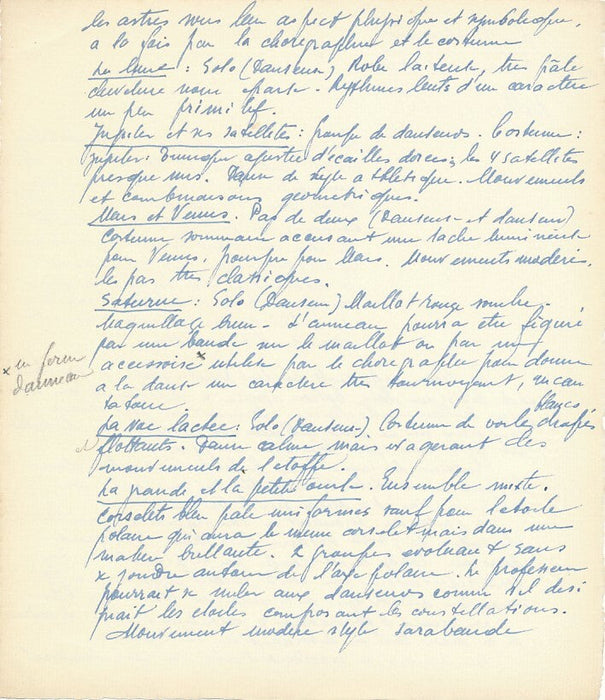 les astres sous leur aspect physique et symbolique,
à la fois par la choregraphie et le costume
La lune : Solo (Danseuse) Robe laiteuse, très pâle
chevelure noire éparse. Rythmes lents d'un caractère
un peu primitif.
Jupiter et ses satellites : groupe de danseurs. Costume :
Jupiter : tunique ajustée d'écailles dorées; les 4 satellites
presque nus. Danse de style athletique. Mouvements
et combinaisons geometriques.
Mars et Venus. Pas de deux (Danseuse et danseur)
Costume sommaire accusant une tache lumineuse
pour Venus, pourpre pour Mars. Mouvements modérés.
les pas très classiques.
Saturne : Solo (Danseur) Maillot rouge sombre.
Maquillage brun. L'anneau pourra être figuré
par une bande sur le maillot ou par un
accessoire x utilisé par le choregraphe pour donner
x en forme
d'anneau
a la danse un caractère très tournoyant,
La voie lactée : Solo (Danseuse) Costume de voiles drapés
blancs
flottants. Danse calme mais exagerant les
mouvements de l'etoffe.
La grande et la petite ourse. Ensemble mixte.
Corselets bleu pale uniformes sauf pour l'etoile
polaire qui aura le meme corselet mais dans une
matière brillante. 2 groupes evoluant sans
se joindre autour de l'axe polaire. Le professeur
pourrait se meler aux danseurs comme s'il desi
gnait les etoiles composant les constellations.
Mouvement modéré style sarabande